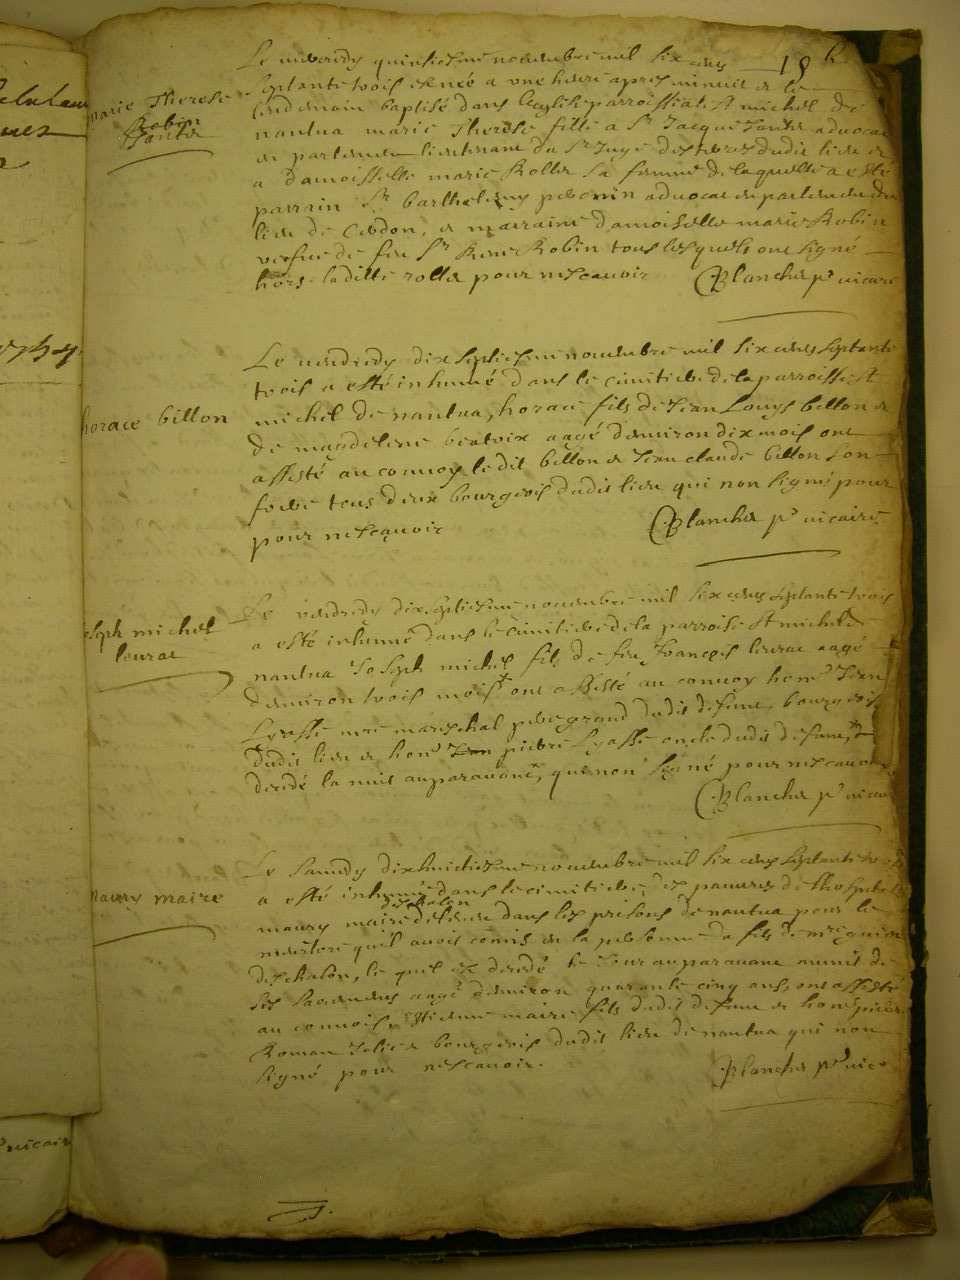 Le mercredy quinziesme novembre mil six cens
15
septante trois est née a une heure apres minuit et le
lendemain baptisé dans leglise parroissial St michel de
nantua marie Therese fille a Sr Jacque advocat
en parlement lieutenant du Sr Juge des dudit lieu et
a damoisselle marie Rollet sa femme de laquelle a esté
parrain Sr barthelemy advocat en parlement du
lieu de Cerdon, et marraine damoiselle marie Robin
vefve de feu Sr Rene Robin tous lesquels ont signé
hors ladille rollet pour ne scavoir Blanchet pr vicaire
marie Therese
Robin
Le vendredy dix septiesme novembre mil six cens septante
trois a esté inhumé dans le cimitiere de la parroisse St
michel de nantua, horace fils de Jean Louys billon et
de magdelene beatrix aagé denviron dix mois ont
assisté au convoy ledit billon et Jean claude billon son
frere tous deux bourgeois dudit lieu qui non signé pour
pour ne scavoir Blanchet pr vicaire
horace billon
Le vendredy dix septiesme novembre mil six cens septante trois
a esté inhumé dans le cimitiere de la parroise St michel de
nantua Joseph michel fils de feu françois leurat aagé
denviron trois mois ont assisté au convoy hone Jean
Lyasse mre mareschal pere grand dudit defunt, bourgeois
dudit lieu et hone Jean pierre Lyasse oncle dudit defunt,
decedé la nuit auparavant, qui non signé pour ne scavoir
Blanchet pr vicaire
michel
leurat
Le samedy dixhuictiesme novembre mil six cens septante trois
a esté inhumé dans le cimitiere des pauvres de lhospital
maury maire deschalon detenu dans les prisons de nantua pour le
meurtre quil avoit comis en la personne du fils de
deschalon, lequel est decedé le Jour auparavant munit de
ses sacremens aagé denviron quarante cinq ans, ont assisté
au convois, Estienne maire fils dudit defunt et hone pierre
Roman bourgeois dudit lieu de nantua qui non
signé pour ne scavoir. Blanchet pr vice
maury maire
vicair